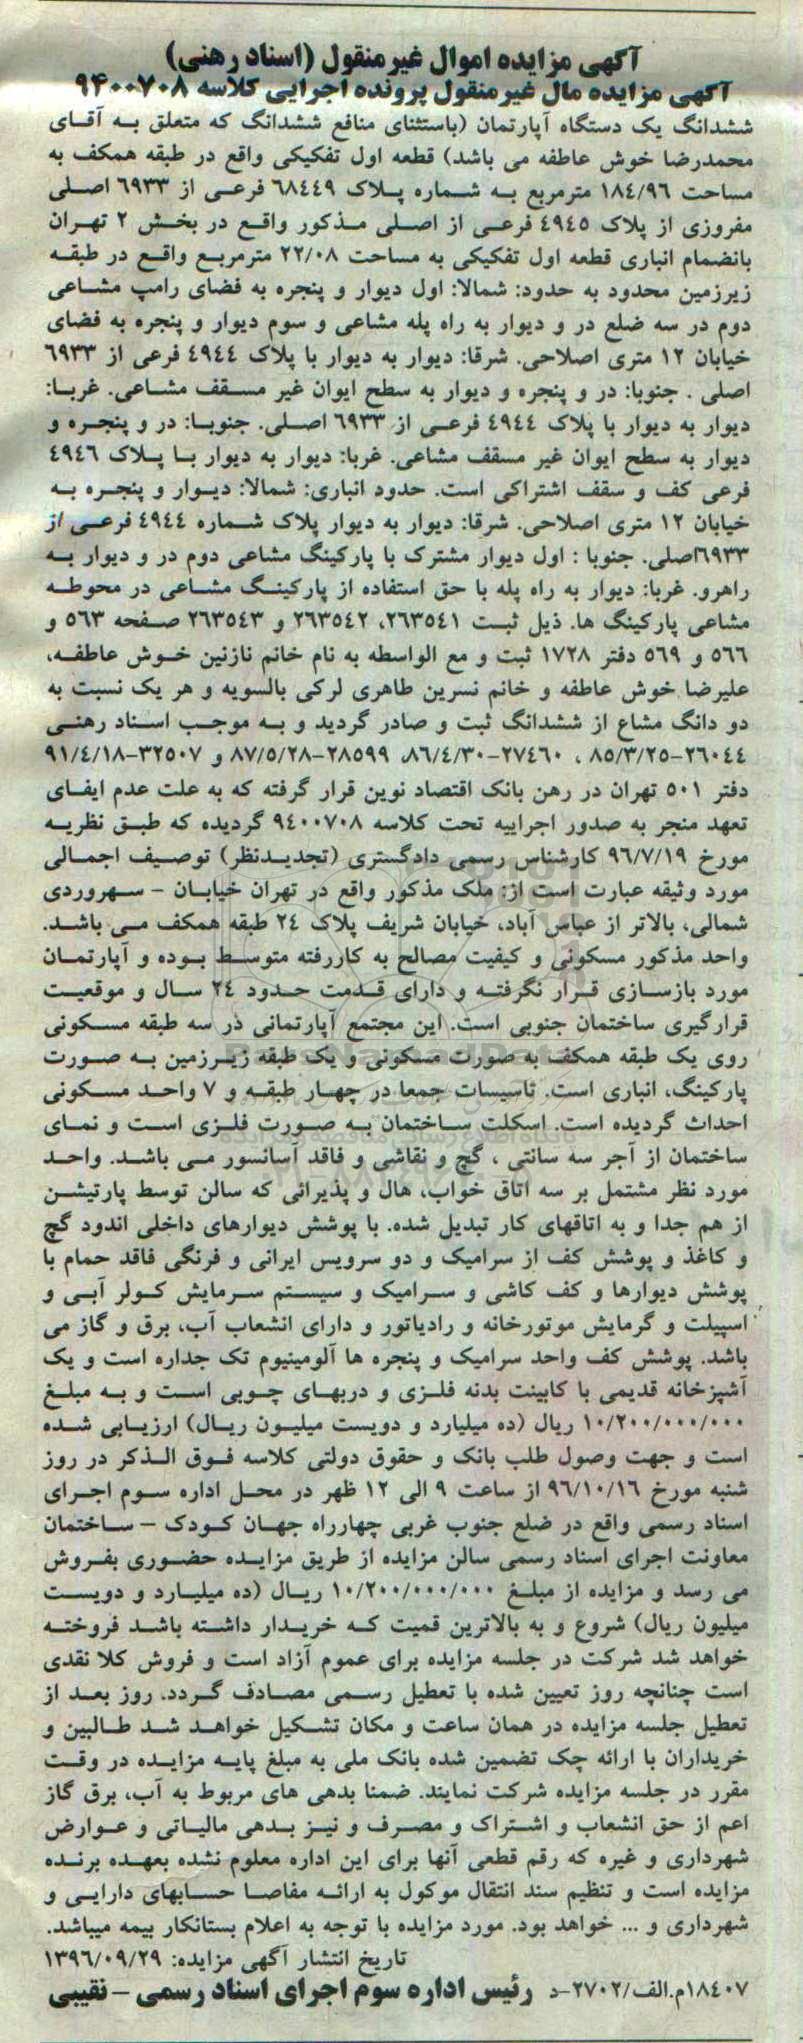 آگهی مزایده اموال غیرمنقول (اسناد رهنی)
آگهی مزایده مال غیرمنقول پرونده اجرایی کلاسه ۹۴۰۰۷۰۸
ششدانگ یک دستگاه آپارتمان (باستثنای منافع ششدانگ که متعلق به آقای
محمدرضا خوش عاطفه می باشد) قطعه اول تفکیکی واقع در طبقه همکف به
مساحت ۱۸٤/۹٦ مترمربع به شماره پلاک ٦۸٤٤۹ فرعی از ٦۹۳۳ اصلی
مفروزی از پلاک ٤۹٤٥ فرعی از اصلی مذکور واقع در بخش ۲ تهران
بانضمام انباری قطعه اول تفکیکی به مساحت ۲۲/۰۸ مترمربع واقع در طبقه
زیرزمین محدود به حدود: شمالا: اول دیوار و پنجره به فضای رامپ مشاعی
دوم در سه ضلع در و دیوار به راه پله مشاعی و سوم دیوار و پنجره به فضای
خیابان ۱۲ متری اصلاحی. شرقا: دیوار به دیوار با پلاک ٤۹٤٤ فرعی از ٦۹۳۳
اصلی . جنوبا: در و پنجره و دیوار به سطح ایوان غیر مسقف مشاعی. غربا:
دیوار به دیوار با پلاک ٤۹٤٤ فرعی از ٦۹۳۳ اصلی. جنوبا: در و پنجره و
دیوار به سطح ایوان غیر مسقف مشاعی. غربا: دیوار به دیوار با پلاک ٤۹٤٦
فرعی کف و سقف اشتراکی است. حدود انباری: شمالا: دیوار و پنجره به
خیابان ۱۲ متری اصلاحی. شرقا: دیوار به دیوار پلاک شماره ٤۹٤٤ فرعی از
٦۹۳۳اصلی. جنوبا : اول دیوار مشترک با پارکینگ مشاعی دوم در و دیوار به
راهرو. غربا: دیوار به راه پله با حق استفاده از پارکینگ مشاعی در محوطه
مشاعی پارکینگ ها. ذیل ثبت ۲٦۳٥٤۱، ۲٦۳٥٤۲ و ۲٦۳٥٤۳ صفحه ٥٦۳ و
٥٦٦ و ٥٦۹ دفتر ۱۷۲۸ ثبت و مع الواسطه به نام خانم نازنین خوش عاطفه،
علیرضا خوش عاطفه و خانم نسرین طاهری لرکی بالسویه و هر یک نسبت به
دو دانگ مشاع از ششدانگ ثبت و صادر گردید و به موجب اسناد رهنی
۲٦۰٤٤-۸٥/۳/۲٥ ، ۲۷٤٦۰-۸٦/٤/۳۰، ۲۸٥۹۹-۸۷/٥/۲۸ و ۳۲٥۰۷-۹۱/٤/۱۸
دفتر ٥۰۱ تهران در رهن بانک اقتصاد نوین قرار گرفته که به علت عدم ایفای
تعهد منجر به صدور اجراییه تحت کلاسه ۹٤۰۰۷۰۸ گردیده که طبق نظریه
مورخ ۹٦/۷/۱۹ کارشناس رسمی دادگستری (تجدیدنظر) توصیف اجمالی
مورد وثیقه عبارت است از: ملک مذکور واقع در تهران خیابان - سهروردی
شمالی، بالاتر از عباس آباد، خیابان شریف پلاک ۲٤ طبقه همکف می باشد.
واحد مذکور مسکونی و کیفیت مصالح به کاررفته متوسط بوده و آپارتمان
مورد بازسازی قرار نگرفته و دارای قدمت حدود ۲٤ سال و موقعیت
قرارگیری ساختمان جنوبی است. این مجتمع آپارتمانی در سه طبقه مسکونی
روی یک طبقه همکف به صورت مسکونی و یک طبقه زیرزمین به صورت
پارکینگ، انباری است. تاسیسات جمعا در چهار طبقه و ۷ واحد مسکونی
احداث گردیده است. اسکلت ساختمان به صورت فلزی است و نمای
ساختمان از آجر سه سانتی ، گچ و نقاشی و فاقد آسانسور می باشد. واحد
مورد نظر مشتمل بر سه اتاق خواب، هال و پذیرائی که سالن توسط پارتیشن
از هم جدا و به اتاقهای کار تبدیل شده. با پوشش دیوارهای داخلی اندود گچ
و کاغذ و پوشش کف از سرامیک و دو سرویس ایرانی و فرنگی فاقد حمام با
پوشش دیوارها و کف کاشی و سرامیک و سیستم سرمایش کولر آبی و
اسپیلت و گرمایش موتورخانه و رادیاتور و دارای انشعاب آب، برق و گاز می
باشد. پوشش کف واحد سرامیک و پنجره ها آلومینیوم تک جداره است و یک
آشپزخانه قدیمی با کابینت بدنه فلزی و دربهای چوبی است و به مبلغ
۱۰/۲۰۰/۰۰۰/۰۰۰ ریال (ده میلیارد و دویست میلیون ریال) ارزیابی شده
است و جهت وصول طلب بانک و حقوق دولتی کلاسه فوق الذکر در روز
شنبه مورخ ۹٦/۱۰/۱٦ از ساعت ۹ الی ۱۲ ظهر در محل اداره سوم اجرای
اسناد رسمی واقع در ضلع جنوب غربی چهارراه جهان کودک – ساختمان
معاونت اجرای اسناد رسمی سالن مزایده از طریق مزایده حضوری بفروش
می رسد و مزایده از مبلغ ۱۰/۲۰۰/۰۰۰/۰۰۰ ریال (ده میلیارد و دویست
میلیون ریال) شروع و به بالاترین قمیت که خریدار داشته باشد فروخته
خواهد شد شرکت در جلسه مزایده برای عموم آزاد است و فروش کلا نقدی
است چنانچه روز تعیین شده با تعطیل رسمی مصادف گردد. روز بعد از
تعطیل جلسه مزایده در همان ساعت و مکان تشکیل خواهد شد طالبین و
خریداران با ارائه چک تضمین شده بانک ملی به مبلغ پایه مزایده در وقت
مقرر در جلسه مزایده شرکت نمایند. ضمنا بدهی های مربوط به آب، برق گاز
اعم از حق انشعاب و اشتراک و مصرف و نیز بدهی مالیاتی و عوارض
شهرداری و غیره که رقم قطعی آنها برای این اداره معلوم نشده بعهده برنده
مزایده است و تنظیم سند انتقال موکول به ارائه مفاصا حسابهای دارایی و
شهرداری و ... خواهد بود. مورد مزایده با توجه به اعلام بستانکار بیمه میباشد.
تاریخ انتشار آگهی مزایده: ۱۳۹٦/۰۹/۲۹
۱۸٤۰۷م.الف/۲۷۰۲-د رئیس اداره سوم اجرای اسناد رسمی - نقیبی